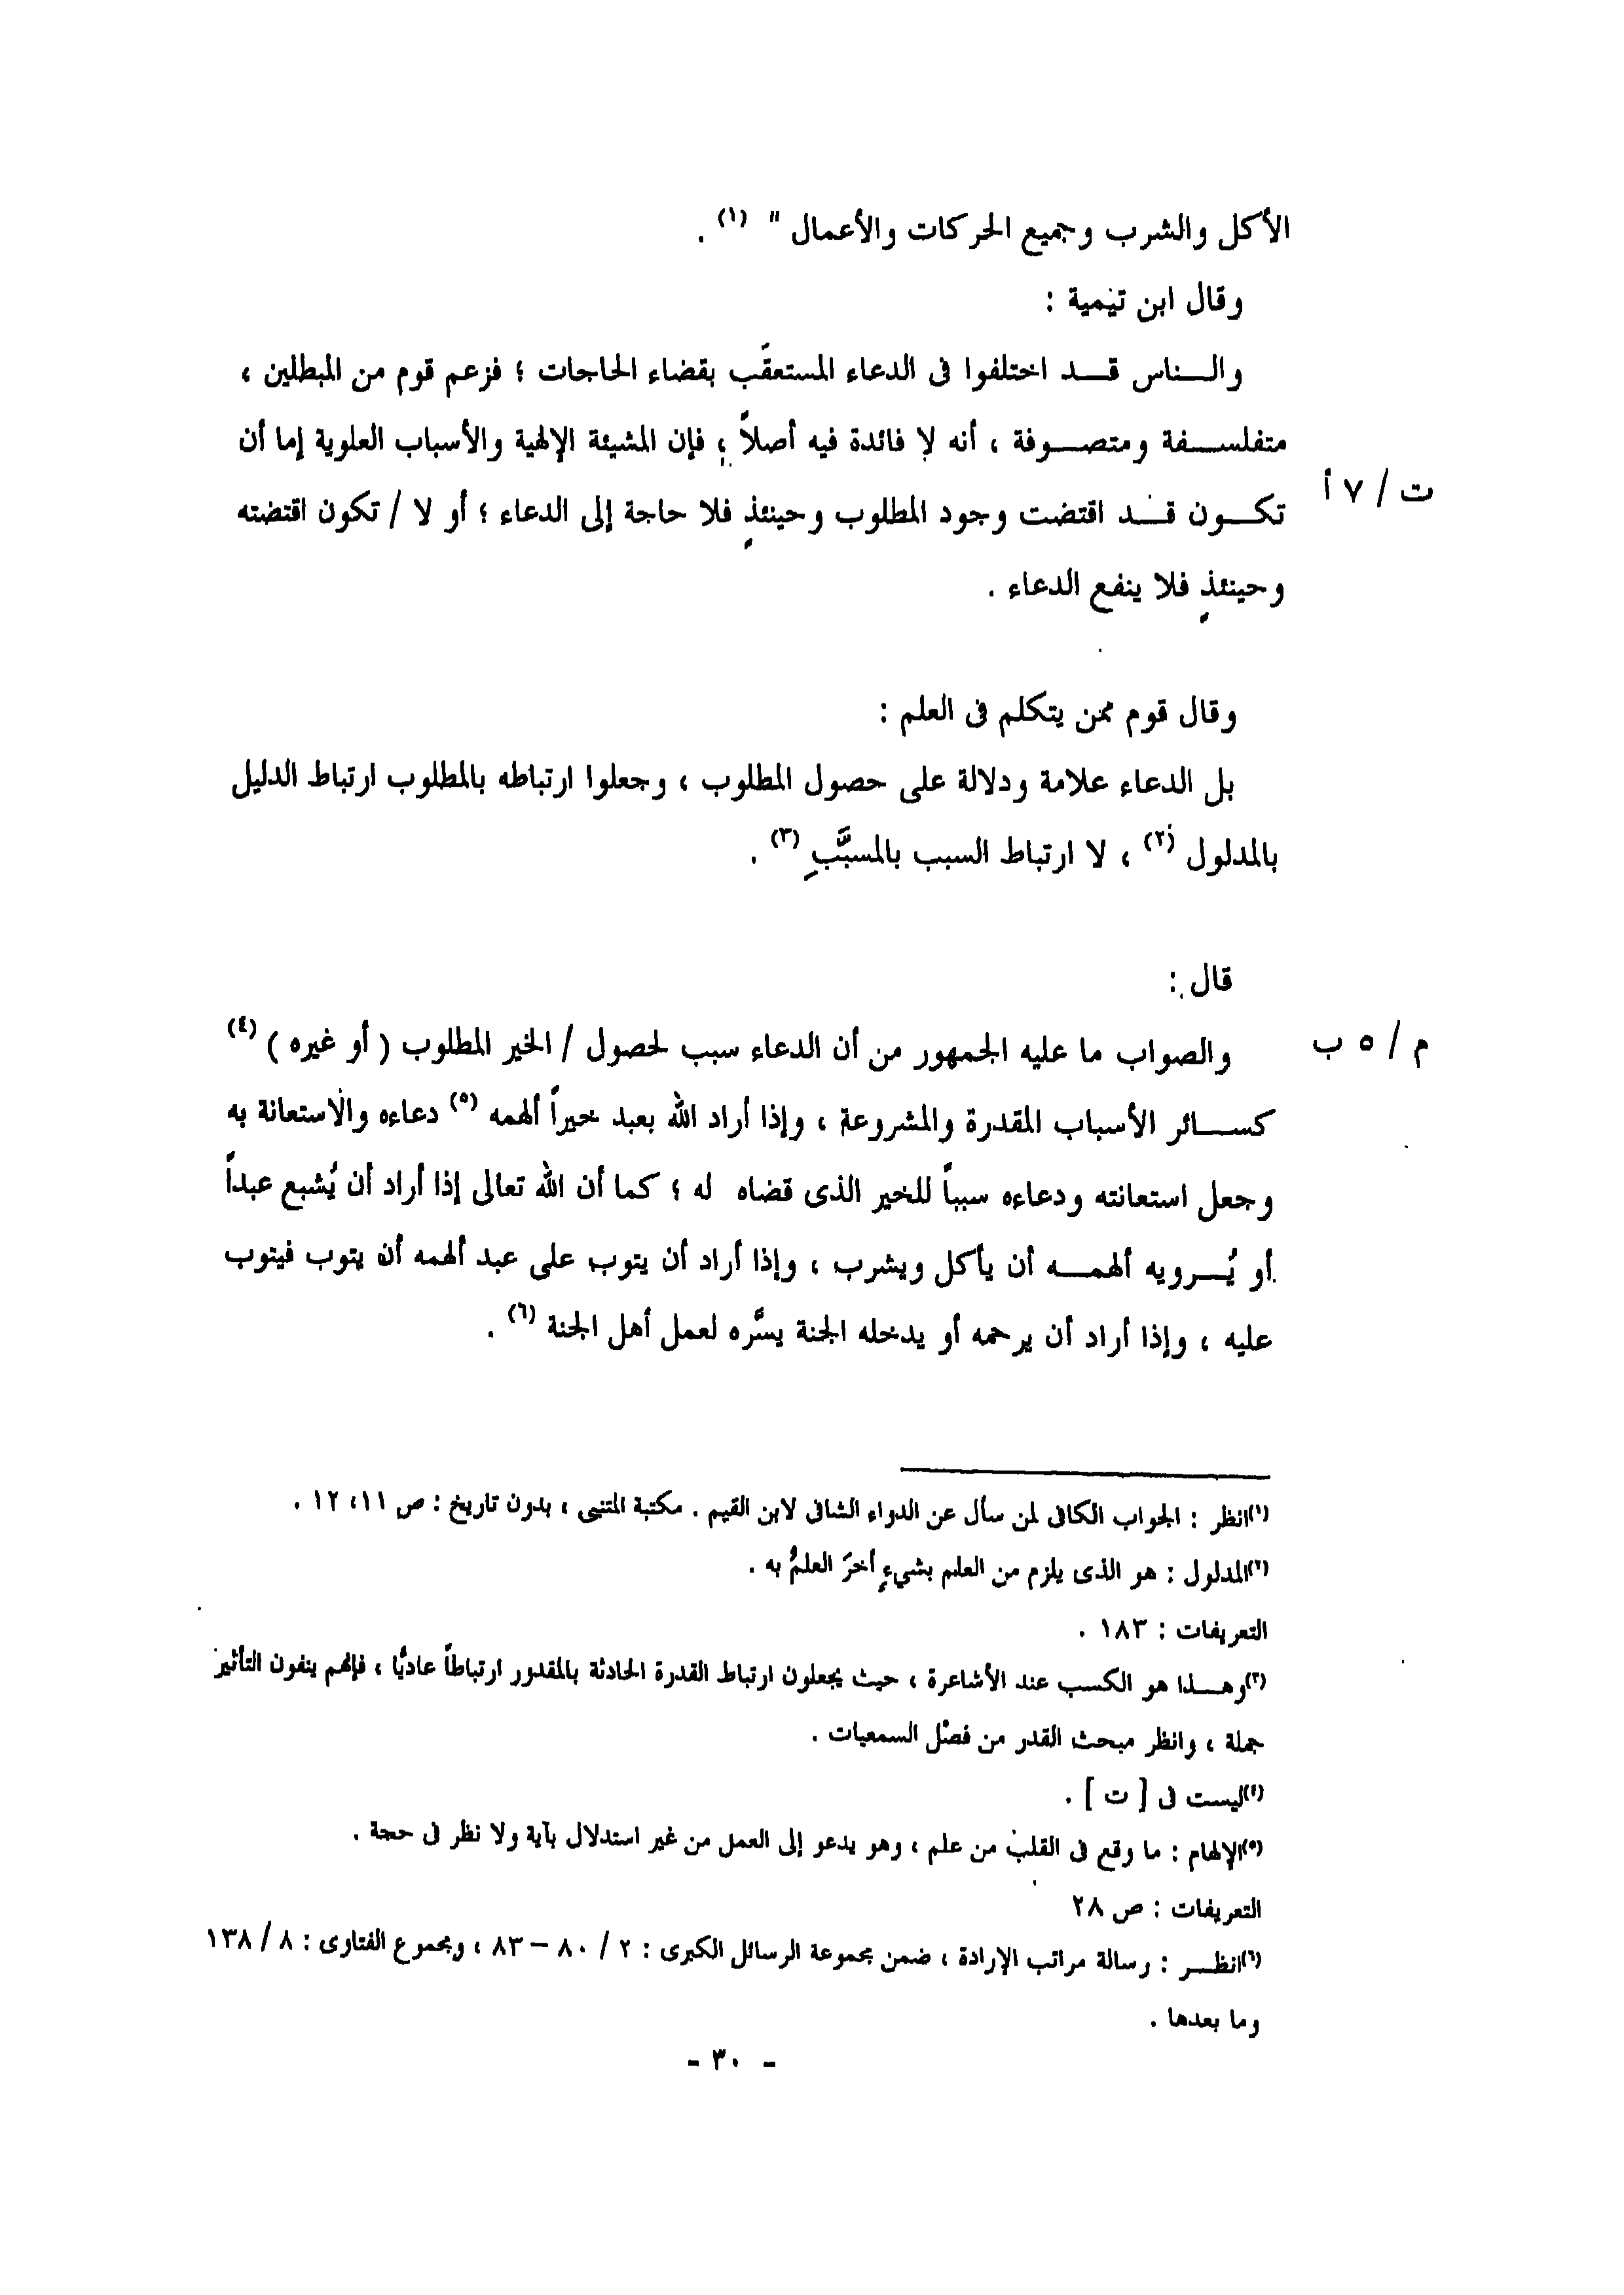 الأكل والشرب وجميع الحركات والأعمال " (١) .
وقال ابن تيمية :
والناس قد اختلفوا فى الدعاء المستعقَب بقضاء الحاجات ؛ فزعم قوم من المبطلين ،
متفلسفة ومتصوفة ، أنه لا فائدة فيه أصلاً ؛ فإن المشيئة الإلهية والأسباب العلوية إما أن
تكون قد اقتضت وجود المطلوب وحينئذٍ فلا حاجة إلى الدعاء ؛ أو لا / تكون اقتضته
ت / ٧ أ
وحينئذٍ فلا ينفع الدعاء .
وقال قوم ممن يتكلم فى العلم :
بل الدعاء علامة ودلالة على حصول المطلوب ، وجعلوا ارتباطه بالمطلوب ارتباط الدليل
بالمدلول (٢) ، لا ارتباط السبب بالمسبَّبِ (٣) .
قال :
والصواب ما عليه الجمهور من أن الدعاء سبب لحصول / الخير المطلوب ( أو غيره ) (٤)
م / ٥ ب
كسائر الأسباب المقدرة والمشروعة ، وإذا أراد الله بعبد خيراً ألهمه (٥) دعاءه والاستعانة به
وجعل استعانته ودعاءه سبباً للخير الذى قضاه له ؛ كما أن الله تعالى إذا أراد أن يُشبع عبداً
أو يُرويه ألهمه أن يأكل ويشرب ، وإذا أراد أن يتوب على عبد ألهمه أن يتوب فيتوب
عليه ، وإذا أراد أن يرحمه أو يدخله الجنة يسَّره لعمل أهل الجنة (٦) .
(١)انظر : الجواب الكافى لمن سأل عن الدواء الشافى لابن القيم . مكتبة المتنبى ، بدون تاريخ : ص ١١، ١٢ .
(٢)المدلول : هو الذى يلزم من العلم بشيءٍ أخرَ العلمُ به .
التعريفات : ١٨٣ .
(٣)وهذا هو الكسب عند الأشاعرة ، حيث يجعلون ارتباط القدرة الحادثة بالمقدور ارتباطاً عاديًّا ، فإنهم ينفون التأثير
جملة ، وانظر مبحث القدر من فصل السمعيات .
(٤)ليست فى [ ت ] .
(٥)الإلهام : ما وقع فى القلب من علم ، وهو يدعو إلى العمل من غير استدلال بآية ولا نظر فى حجة .
التعريفات : ص ٢٨
(٦)انظر : رسالة مراتب الإرادة ، ضمن مجموعة الرسائل الكبرى : ٢ / ٨٠ – ٨٣ ، ومجموع الفتاوى : ٨ / ١٣٨
وما بعدها .
- ٣٠ -